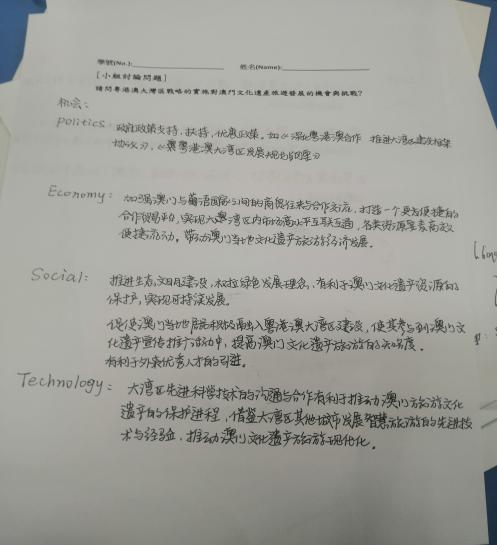 學號(No.): 姓名(Name):
[小組討論問題]
請問粵港澳大灣區戰略的實施對澳門文化遺產旅遊發展的機會與挑戰?
机会:
politics: 政府政策支持,扶持,优惠政策。如《深化粤港澳合作 推进大湾区建设框架
协议》,《粤港澳大湾区发展规划纲要》
Economy: 加强澳门与葡语国家之间的商贸往来与合作交流,打造一个更为便捷的
合作贸易平台,实现大湾区内市场高水平互联互通,各类资源要素高效
便捷流动。带动澳门当地文化遗产旅游的经济发展。
Social: 推进生态文明建设,树立绿色发展理念,有利于澳门文化遗产资源的
保护,实现可持续发展。
促使澳门当地居民积极融入粤港澳大湾区建设,使其参与到澳门文
化遗产宣传推广活动中,提高澳门文化遗产旅游的知名度。
有利于外来优秀人才的引进。
Technology: 大湾区先进科学技术的沟通与合作有利于推动澳门旅游文化
遗产的保护进程,借鉴大湾区其他城市发展智慧旅游的先进技
术与经验,推动澳门文化遗产旅游现代化。